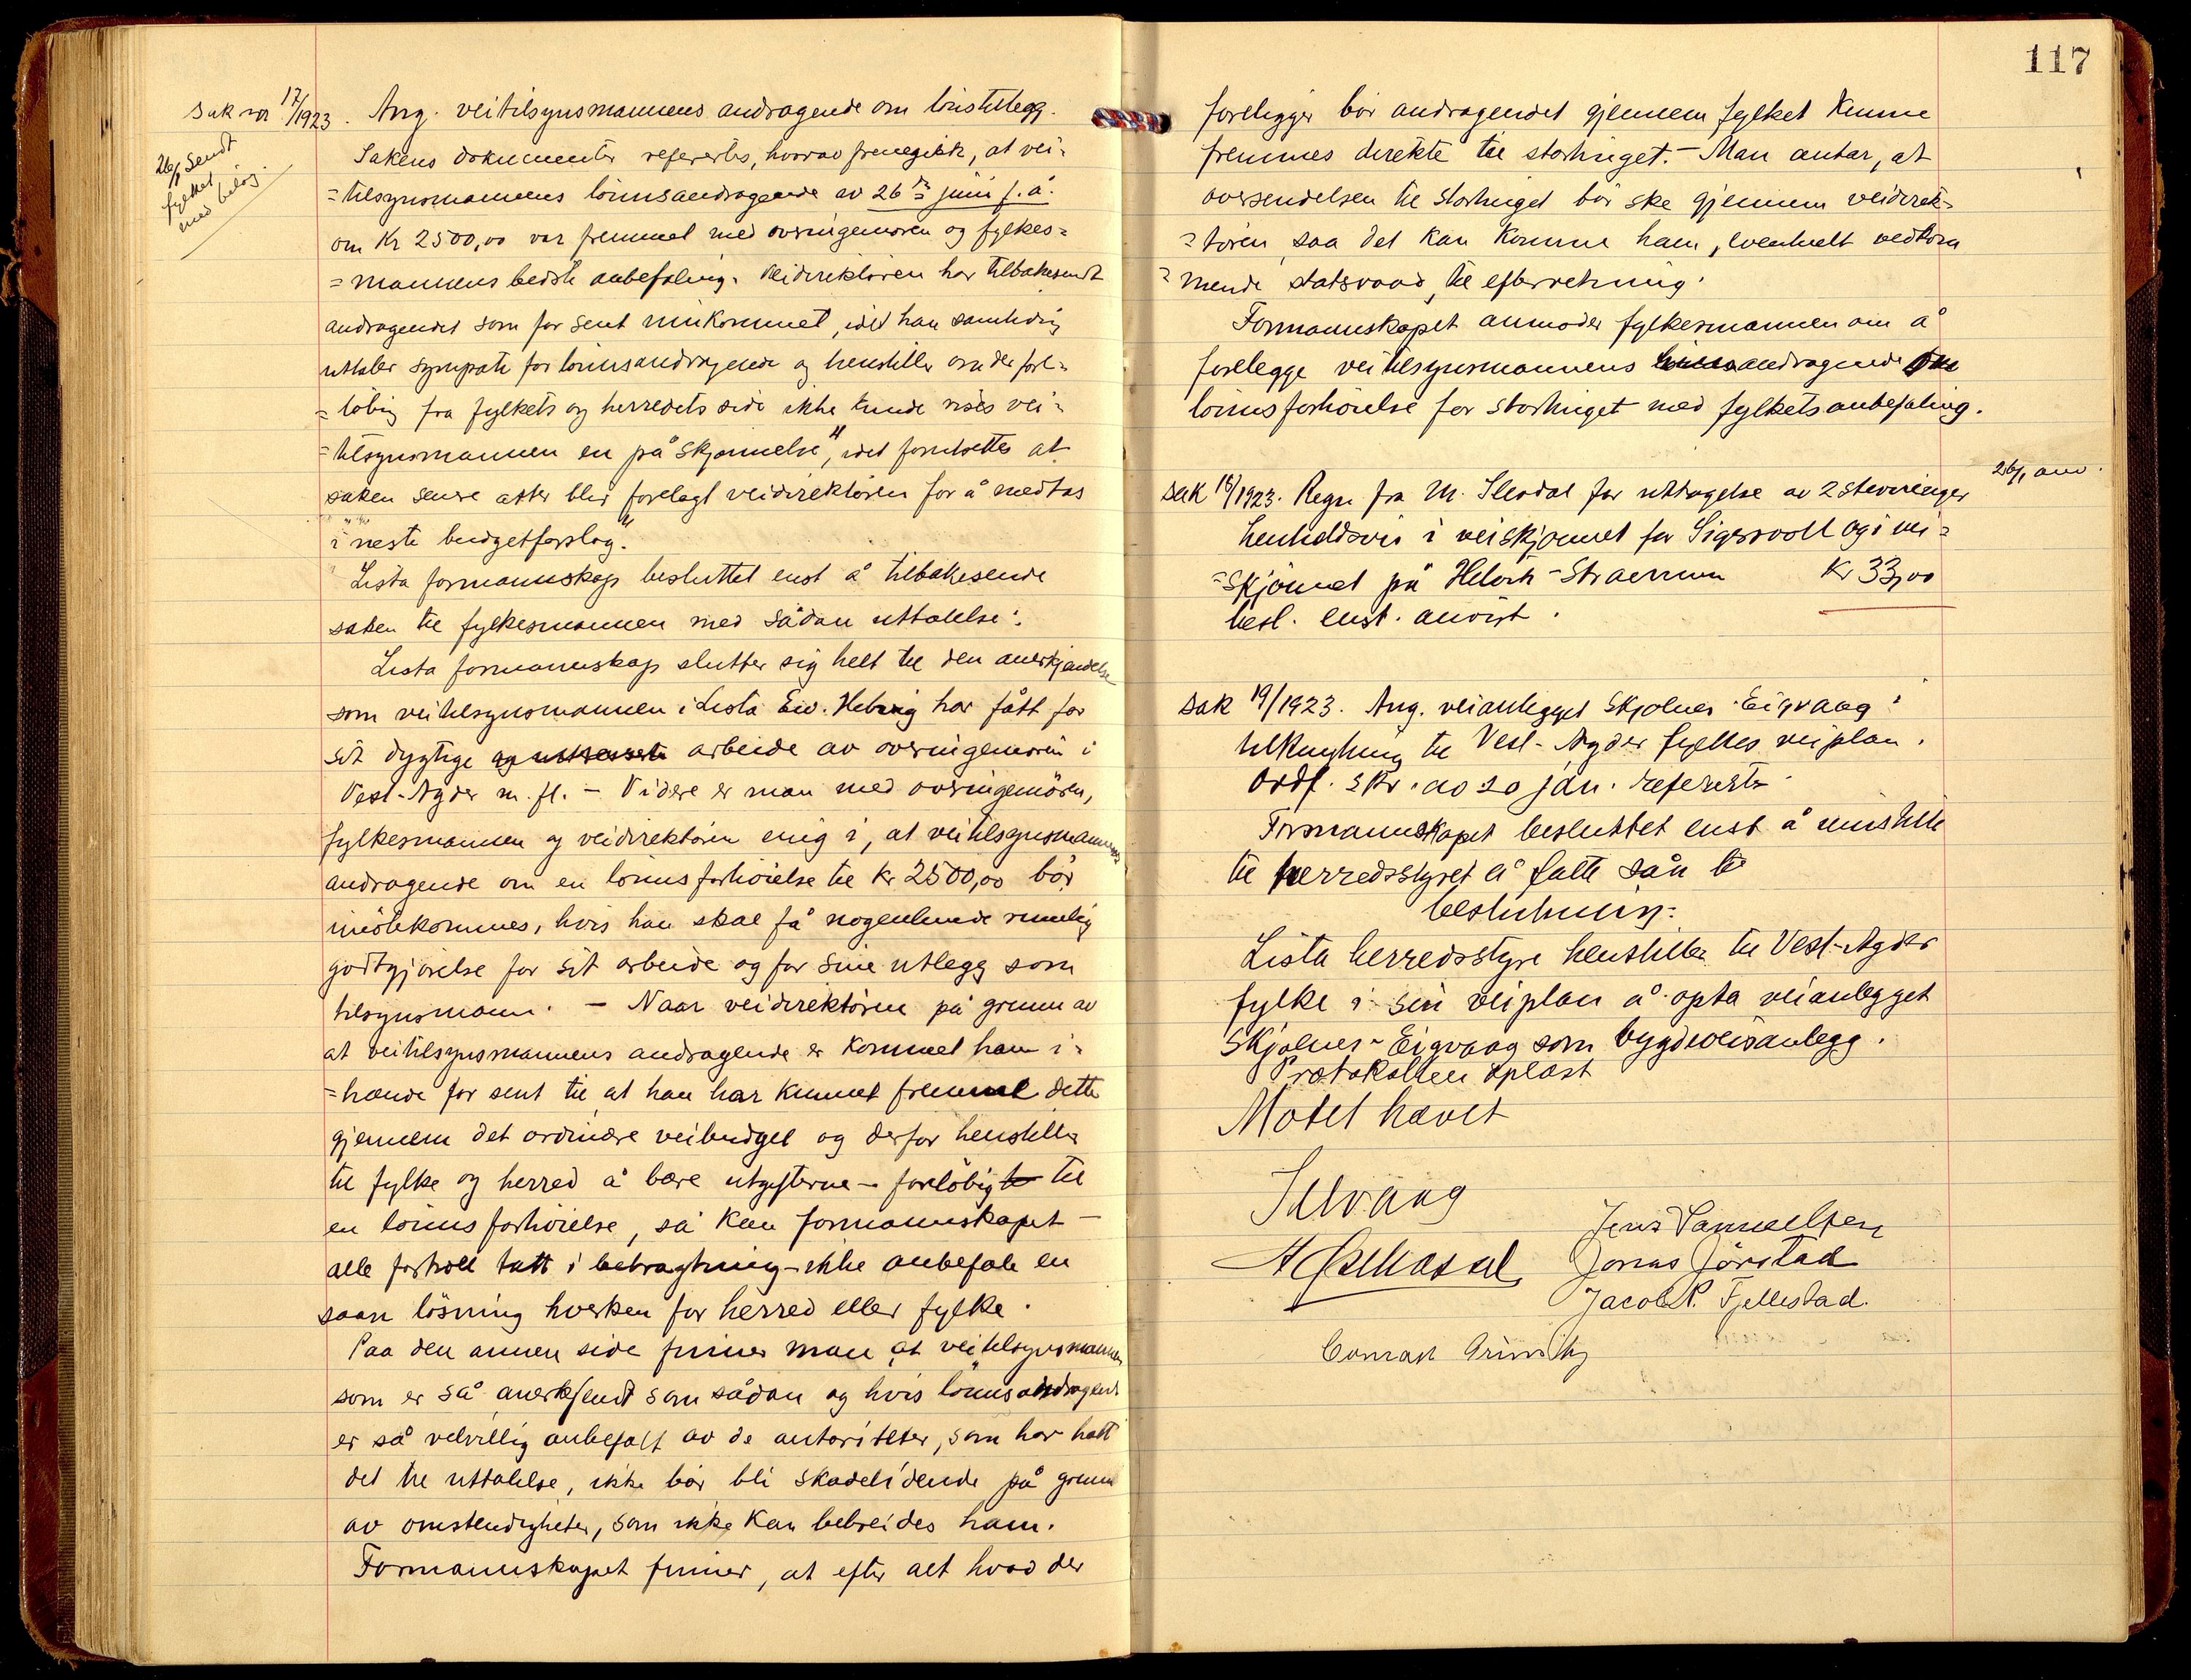 Sak nr 17/1923. Ang. veitilsynsmannens andragende om lönstillegg.
26/1 sendt
fylket
med bilag.
Sakens dokumenter referertes, hvorav fremgikk, at vei-
=tilsynsmannens lönnsandragende av 26de juni f.å.
om Kr 2500,00 var fremmet med overingeniören og fylkes=
=mannens bedste anbefaling. Veidirektören har tilbakesendt
andragendet som for sent innkommet, idet han samtidig
uttaler sympati for lönnsandragende og henstiller om der fore=
=löbig fra fylkets og herredets side ikke kunde vises vei=
=tilsynsmannen en påskjönnelse", idet forutsettes at
saken senere atter blir forelagt veidirektören for å medtas
"i neste budgetforslag".
Lista formannskap besluttet enst å tilbakesende
saken til fylkesmannen med sådan uttalelse:
Lista formannskap slutter sig helt til den anerkjendelse
som veitilsynsmannen i Lista Eiv. Hebnig har fått for
sit dygtige arbeide av overingeniören i
Vest-Agder m. fl. – Videre er man med overingeniören,
fylkesmannen og veidirektören enig i, at veitilsynsmannens
andragende om en lönnsforhöielse til Kr 2500,00 bör
imötekommes, hvis han skal få nogenlunde rimelig
godtgjörelse for sit arbeide og for sine utlegg som
tilsynsmann. – Naar veidirektören på grunn av
at veitilsynsmannens andragende er kommet ham i=
=hænde for sent til at han har kunnet fremmet dette
gjennem det ordinære veibudget og derfor henstiller
til fylke og herred å bære utgifterne – foreløbig til
en lönnsforhöielse, så kan formannskapet –
alle forhold tatt i betragtning – ikke anbefale en
saan lösning hverken for herred eller fylke.
Paa den annen side finner man at veitilsynsmannen
som er så anerkjent som sådan og hvis lönnsandragende
er så velvillig anbefalt av de autoriteter, som har hatt
det til uttalelse, ikke bör bli skadelidende på grunn
av omstendigheter, som ikke kan bebreides ham.
Formannskapet finner, at efter alt hvad der
117
foreligger bör andragendet gjennem fylket kunne
fremmes direkte til stortinget. – Man antar, at
oversendelsen til Stortinget bör ske gjennem veidirek=
=tören, saa det kan komme ham, eventuelt vedkom
=mende statsraad, til efterretning.
Formannskapet anmoder fylkesmannen om å
forelegge veitilsynsmannens andragende om
lönnsforhöielse for stortinget med fylkets anbefaling.
26/1 anv.
Sak 18/1923. Regn fra M. for uttagelse av 2 stevninger
henholdsvis i veiskjönnet for Sigersvoll og i vei=
=skjönnet på Helvik – Straumen Kr 33,00
besl. enst. anvist.
Sak 19/1923. Ang. veianlegget Skjolnes-Eigvaag i
tilknytning til Vest-Agder fylkes veiplan.
Ordf. skr. av 20 jan. refererte.
Formannskapet besluttet enst å innstille
til herredsstyret å fatte sån
beslutning:
Lista herredsstyre henstiller til Vest-Agder
fylke i sin veiplan å opta veianlegget
Skjolnes-Eigvaag som bygdeveisanlegg.
Protokollen oplæst
Mötet hævet
Jens Samuelsen
Jonas Jörstad
Jacob P. Fjellestad.